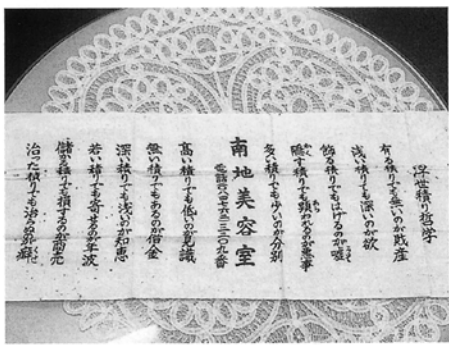 浮世積り哲学
有る積りでも無いのが財産
浅い積りでも深いのが欲
飾る積りでもはげるのが嘘
隠す積りでも顕われるのが悪事
多い積りでも少いのが分別
南地美容室
電話
高い積りでも低いのが見識
無い積りでもあるのが借金
深い積りでも浅いのが知恵
若い積りでも寄せるのが年波
儲かる積りでも損するのが商売
治った積りでも治ぬ